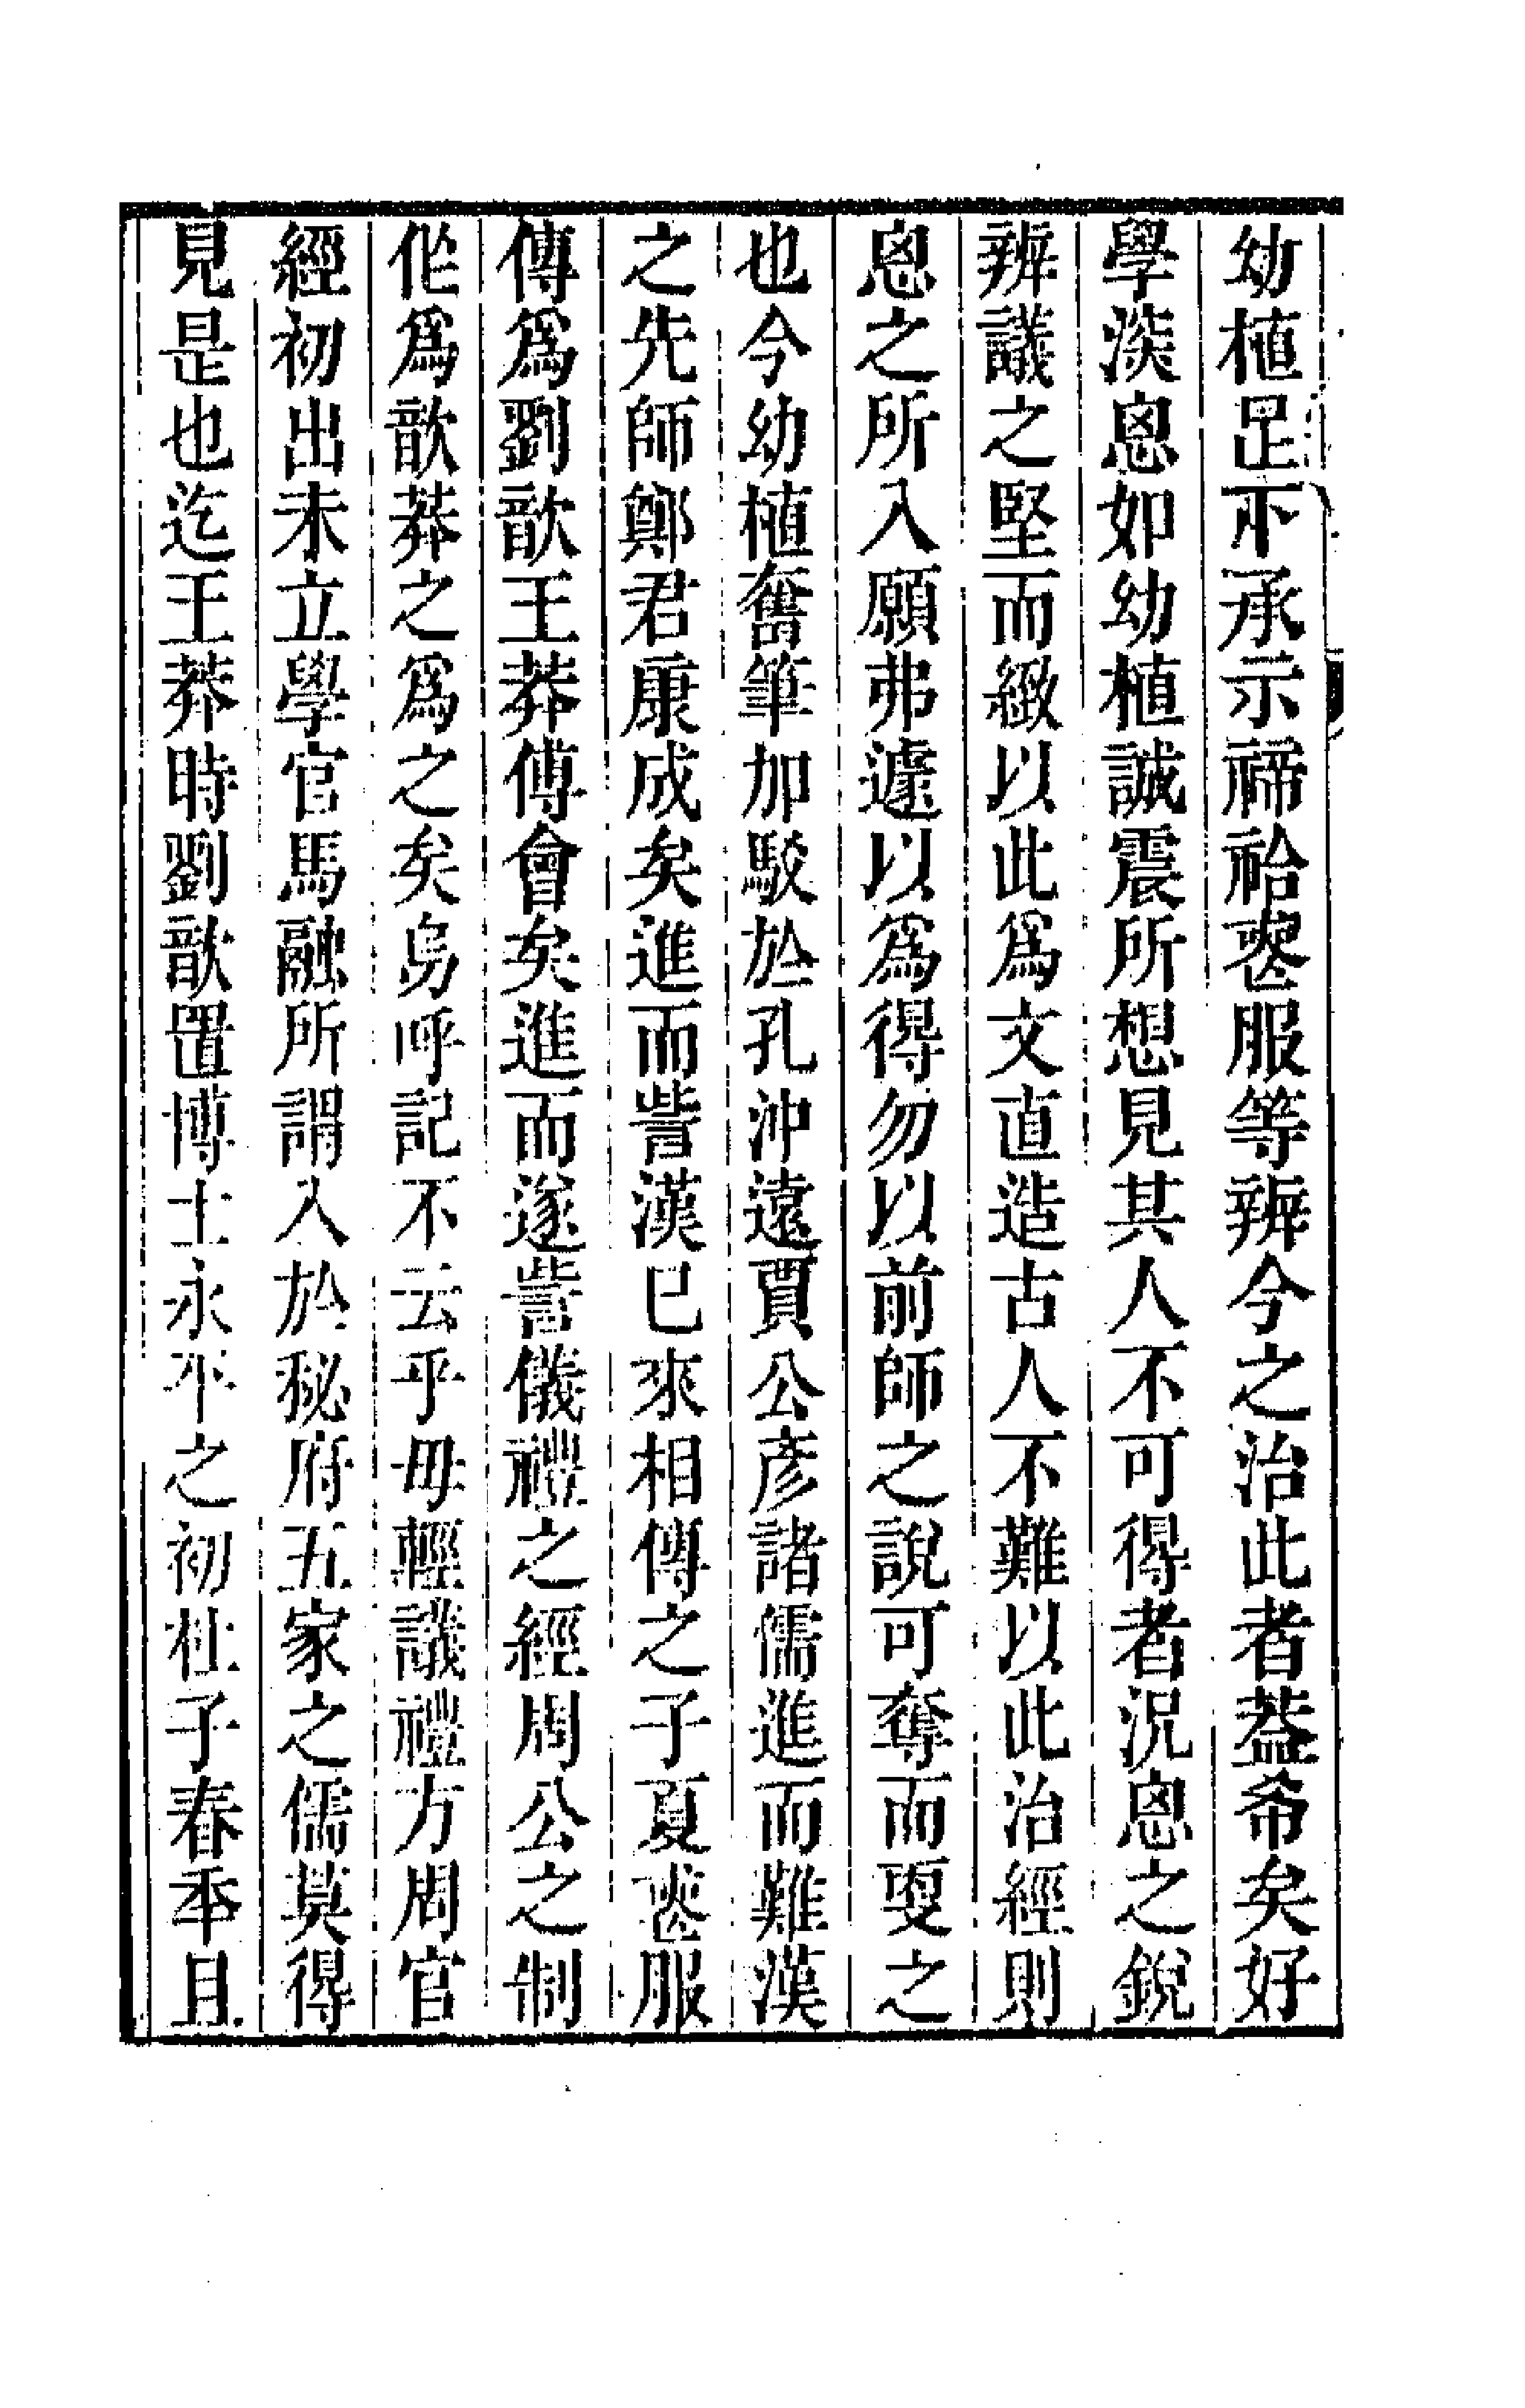 幼植足下承示禘祫喪服等辨今之治此者葢希矣好
學深思如幼植誠震所想見其人不可得者況思之銳
辨議之堅而緻以此爲文直造古人不難以此治經則
思之所入願弗遽以爲得勿以前師之說可奪而更之
也今幼植奮筆加駁於孔沖遠賈公彥諸儒進而難漢
之先師鄭君康成矣進而訾漢已來相傳之子夏喪服
傳爲劉歆王莽傅會矣進而遂訾儀禮之經周公之制
作爲歆莽之爲之矣烏呼記不云乎毋輕議禮方周官
經初出未立學官馬融所謂入於秘府五家之儒莫得
見是也迄王莽時劉歆置博士永平之初杜子春年且